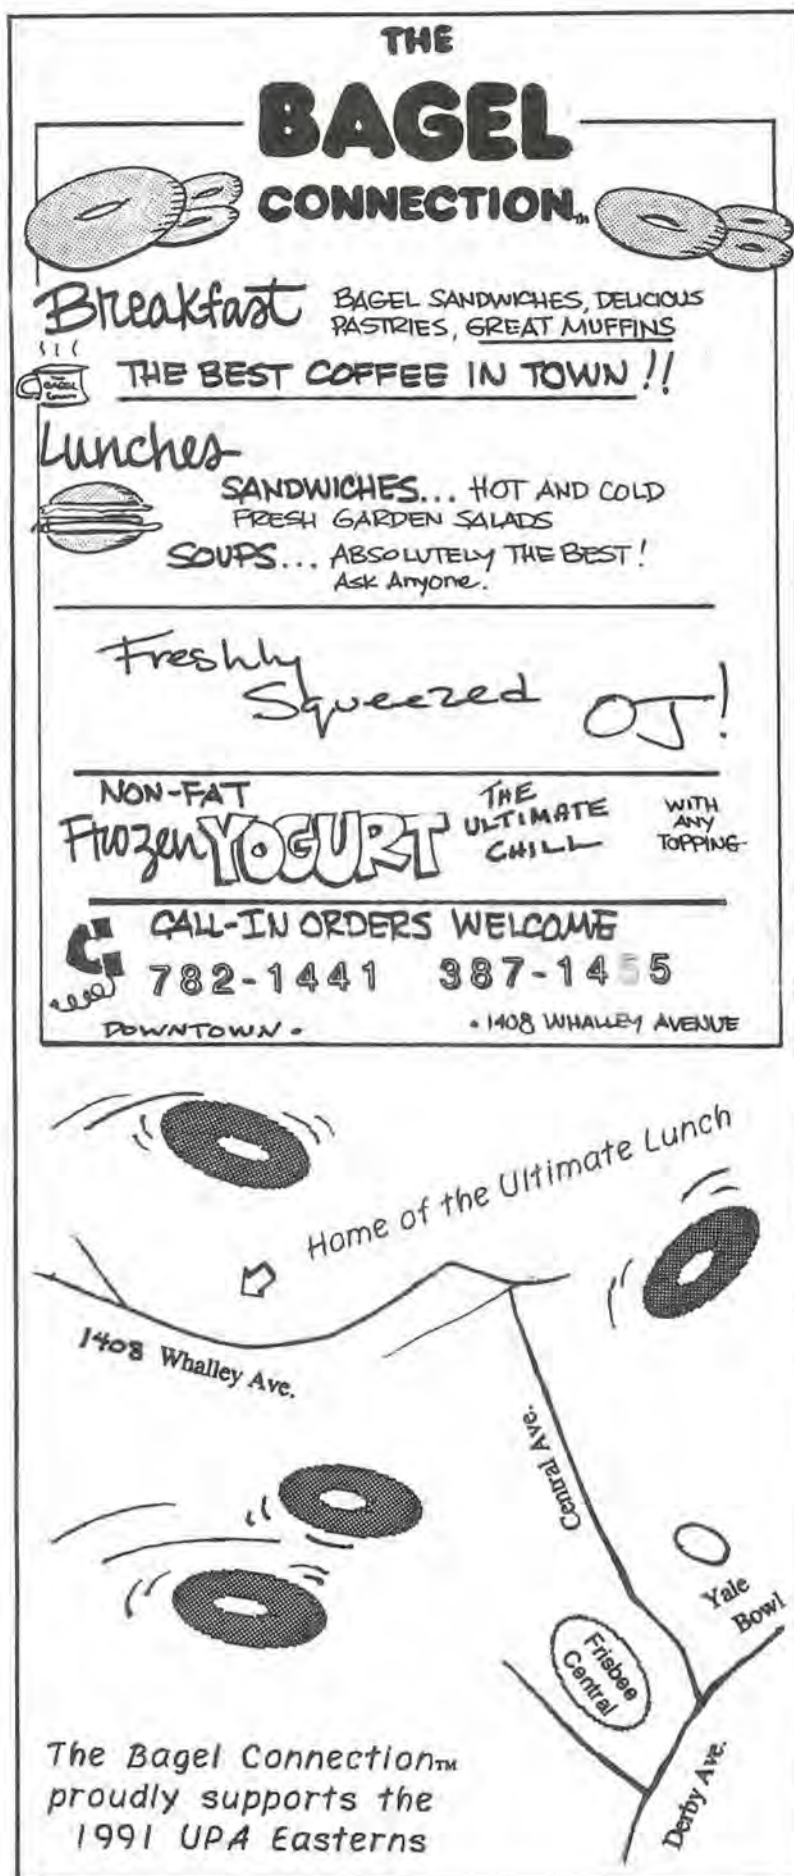 THE
BAGEL
CONNECTION™
Breakfast BAGEL SANDWICHES, DELICIOUS
PASTRIES, GREAT MUFFINS
THE BAGEL
THE BEST COFFEE IN TOWN!!
Lunches
SANDWICHES... HOT AND COLD
FRESH GARDEN SALADS
SOUPS... ABSOLUTELY THE BEST!
Ask Anyone.
Freshly
Squeezed OJ!
NON-FAT
Frozen YOGURT THE ULTIMATE CHILL WITH ANY TOPPING
CALL-IN ORDERS WELCOME
782-1441 387-1455
DOWNTOWN • • 1408 WHALLEY AVENUE
Home of the Ultimate Lunch
1408 Whalley Ave.
Central Ave.
Yale
Bowl
Frisbee
Central
Derby Ave.
The Bagel Connection™
proudly supports the
1991 UPA Easterns